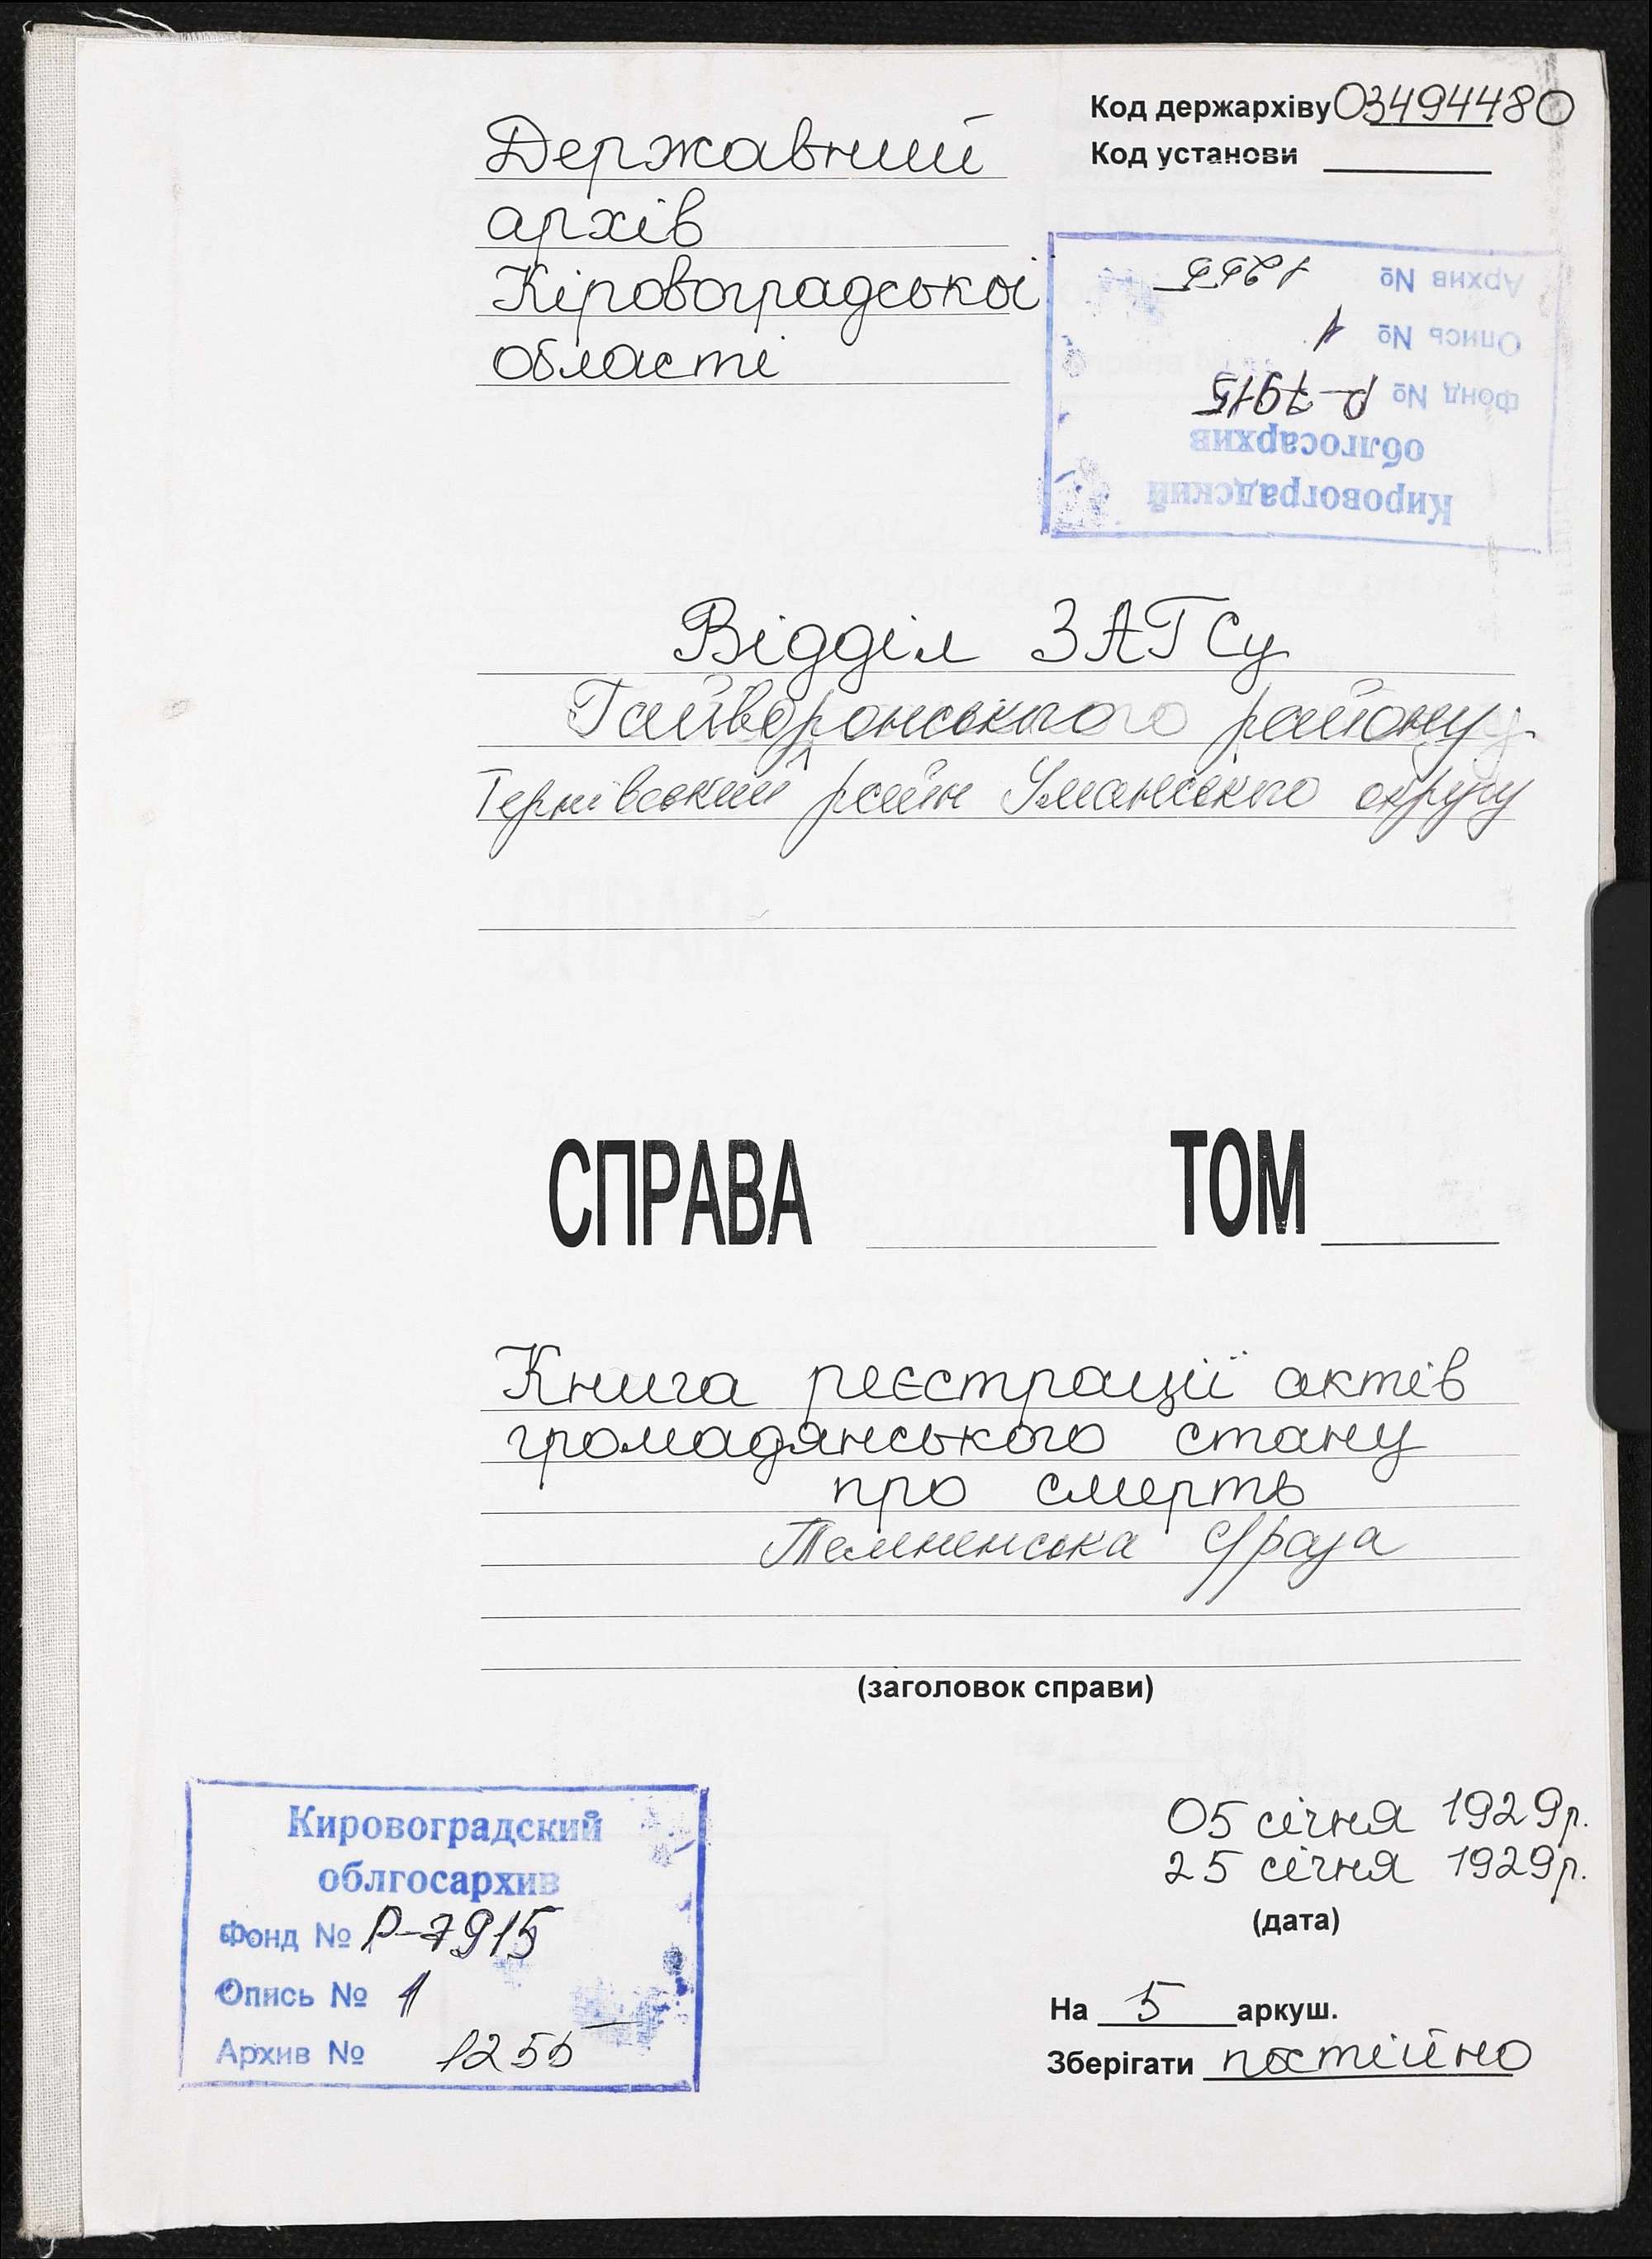 Код держархіву 03494480
Код установи
Державний
архів
Кіровоградської
області
Кировоградский
облгосархив
Фонд № Р-7915
Опись № 1
Архив № 1255
Відділ ЗАГСу
Гайворонського району
Тернівський район Уманського округу
СПРАВА ТОМ
Книга реєстрації актів
громадянського стану
про смерть
(заголовок справи)
05 січня 1929р.
25 січня 1929р.
(дата)
На 5 аркуш.
Зберігати постійно
Кировоградский
облгосархив
Фонд № Р-7915
Опись № 1
Архив № 1255